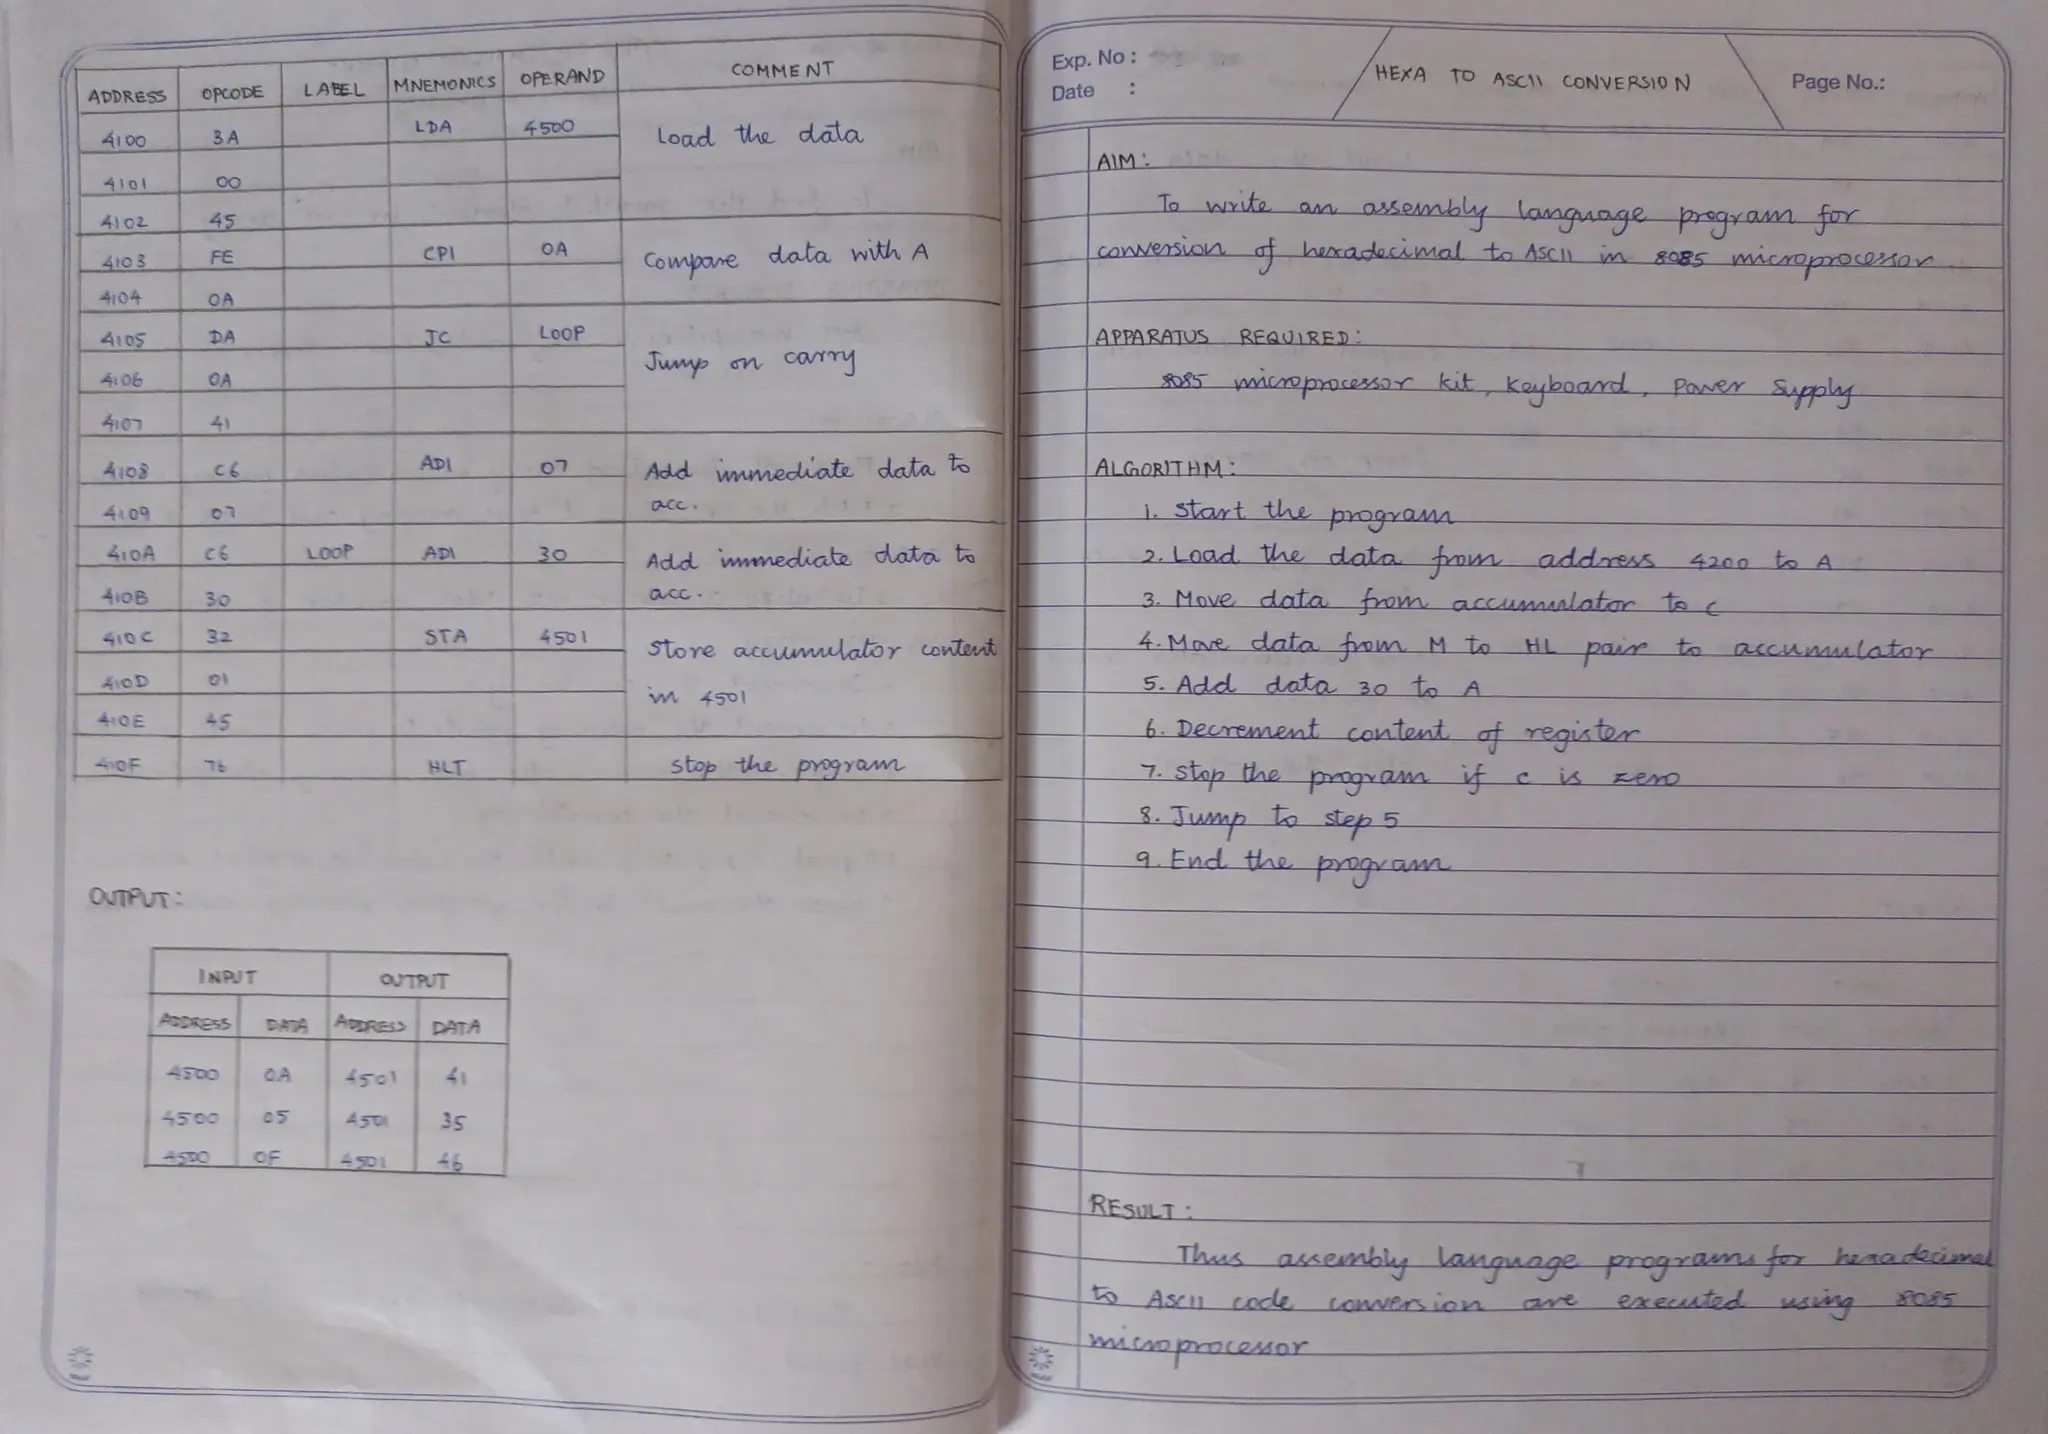 ADDRESS OPCODE LABEL MNEMONICS OPERAND COMMENT
4100 3A LDA 4500 Load the data
4101 00
4102 45
4103 FE CPI 0A Compare data with A
4104 0A
4105 DA JC LOOP Jump on carry
4106 0A
4107 41
4108 C6 ADI 07 Add immediate data to
4109 07 acc.
410A C6 LOOP ADI 30 Add immediate data to
410B 30 acc.
410C 32 STA 4501 Store accumulator content
410D 01 in 4501
410E 45
410F 76 HLT stop the program
OUTPUT:
INPUT OUTPUT
ADDRESS DATA ADDRESS DATA
4500 0A 4501 41
4500 05 4501 35
4500 0F 4501 46
Exp. No :
Date :
HEXA TO ASCII CONVERSION
Page No.:
AIM:
To write an assembly language program for
conversion of hexadecimal to ASCII in 8085 microprocessor.
APPARATUS REQUIRED:
8085 microprocessor kit, Keyboard, Power Supply
ALGORITHM:
1. Start the program
2. Load the data from address 4200 to A
3. Move data from accumulator to C
4. Move data from M to HL pair to accumulator
5. Add data 30 to A
6. Decrement content of register
7. Stop the program if c is zero
8. Jump to step 5
9. End the program
RESULT:
Thus assembly language programs for hexadecimal
to ASCII code conversion are executed using 8085
microprocessor